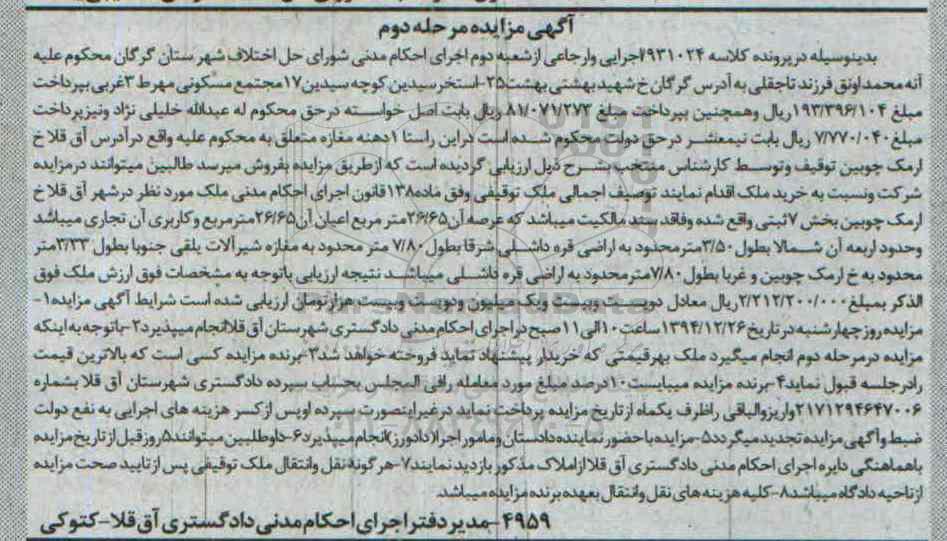 آگهی مزایده مرحله دوم
بدینوسیله در پرونده کلاسه ۹۳۱۰۲۴ اجرایی وارجاعی ازشعبه دوم اجرای احکام مدنی شورای حل اختلاف شهرستان گرگان محکوم علیه
آنه محمد اونق فرزند تاجقلی به آدرس گرگان خ شهید بهشتی بهشت۲۵-استخر سیدین کوچه سیدین۱۷مجتمع مسکونی مهرط۳غربی بپرداخت
مبلغ ۱۹۳/۳۹۶/۱۰۴ریال وهمچنین بپرداخت مبلغ ۸۱/۰۷۱/۲۷۳ ریال بابت اصل خواسته درحق محکوم له عبدالله خلیلی نژاد ونیزپرداخت
مبلغ۷/۷۷۰/۰۴۰ ریال بابت نیمعشر در حق دولت محکوم شده است دراین راستا ۱دهنه مغازه متعلق به محکوم علیه واقع درآدرس آق قلا خ
ارمک چوبین توقیف وتوسط کارشناس منتخب بشرح ذیل ارزیابی گردیده است که ازطریق مزایده بفروش میرسد طالبین میتوانند درمزایده
شرکت ونسبت به خرید ملک اقدام نمایند توصیف اجمالی ملک توقیفی وفق ماده۱۳۸قانون اجرای احکام مدنی ملک مورد نظر درشهر آق قلا خ
ارمک چوبین بخش ۷ثبتی واقع شده وفاقد سند مالکیت میباشد که عرصه آن۲۶/۶۵متر مربع اعیان آن۲۶/۶۵مترمربع وکاربری آن تجاری میباشد
وحدود اربعه آن شمالا بطول۳/۵۰مترمحدود به اراضی قره داشلی شرقا بطول۷/۸۰ متر محدود به مغازه شیرآلات یلقی جنوبا بطول ۳/۳۳متر
محدود به خ ارمک چوبین و غربا بطول۷/۸۰مترمحدود به اراضی قره داشلی میباشد نتیجه ارزیابی باتوجه به مشخصات فوق ارزش ملک فوق
الذکر بمبلغ۲/۲۱۲/۲۰۰/۰۰۰ریال معادل دویست وبیست ویک میلیون ودویست وبیست هزارتومان ارزیابی شده است شرایط آگهی مزایده۱-
مزایده روز چهارشنبه در تاریخ ۱۳۹۴/۱۲/۲۶ساعت ۱۰الی۱۱صبح دراجرای احکام مدنی دادگستری شهرستان آق قلاانجام میپذیرد۲-باتوجه به اینکه
مزایده درمرحله دوم انجام میگیرد ملک بهرقیمتی که خریدار پیشنهاد نماید فروخته خواهد شد۳-برنده مزایده کسی است که بالاترین قیمت
رادرجلسه قبول نماید۴-برنده مزایده میبایست۱۰درصد مبلغ مورد معامله رافی المجلس بحساب سپرده دادگستری شهرستان آق قلا بشماره
۲۱۷۱۲۹۴۶۴۷۰۰۶واریزوالباقی راظرف یکماه ازتاریخ مزایده پرداخت نماید درغیراینصورت سپرده اوپس ازکسر هزینه های اجرایی به نفع دولت
ضبط وآگهی مزایده تجدید میگردد۵-مزایده باحضور نماینده دادستان ومامور اجرا(دادورز)انجام میپذیرد۶-داوطلبین میتوانند۵روزقبل ازتاریخ مزایده
باهماهنگی دایره اجرای احکام مدنی دادگستری آق قلاازاملاک مذکور بازدید نمایند۷-هرگونه نقل وانتقال ملک توقیفی پس ازتایید صحت مزایده
ازناحیه دادگاه میباشد۸-کلیه هزینه های نقل وانتقال بعهده برنده مزایده میباشد.
۴۹۵۹-مدیر دفتر اجرای احکام مدنی دادگستری آق قلا-کتوکی